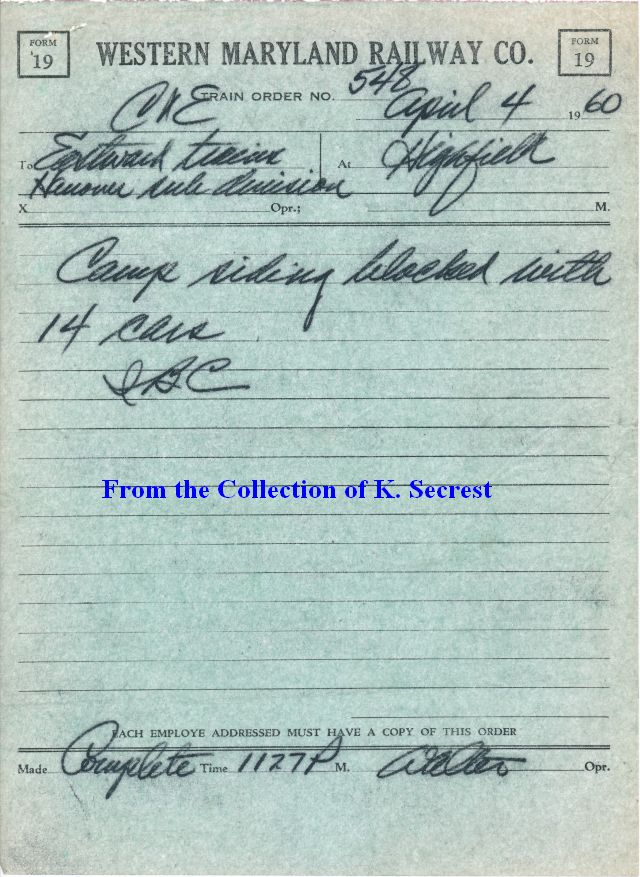 FORM
19
WESTERN MARYLAND RAILWAY CO.
FORM
19
TRAIN ORDER NO. 548
C&E April 4 1960
To Eastward trains At Highfield
Hanover sub division
X Opr.; M.
Camp siding blocked with
14 cars
From the Collection of K. Secrest
EACH EMPLOYE ADDRESSED MUST HAVE A COPY OF THIS ORDER
Made Complete Time 1127 P M. Opr.